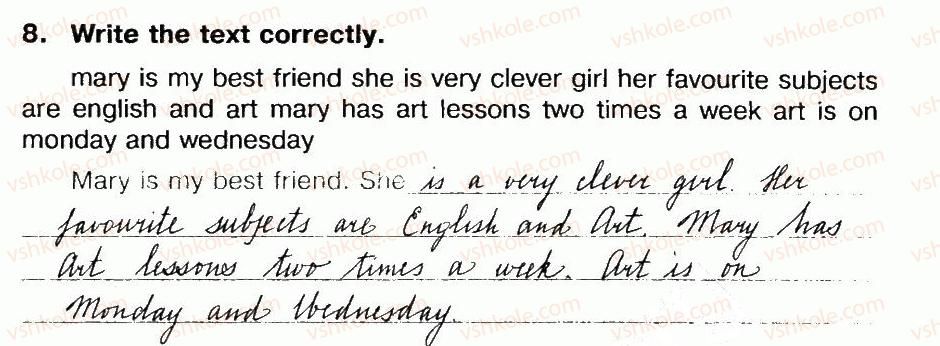 8. Write the text correctly.
mary is my best friend she is very clever girl her favourite subjects
are english and art mary has art lessons two times a week art is on
monday and wednesday
Mary is my best friend. She is a very clever girl. Her
favourite subjects are English and Art. Mary has
Art lessons two times a week. Art is on
Monday and Wednesday.